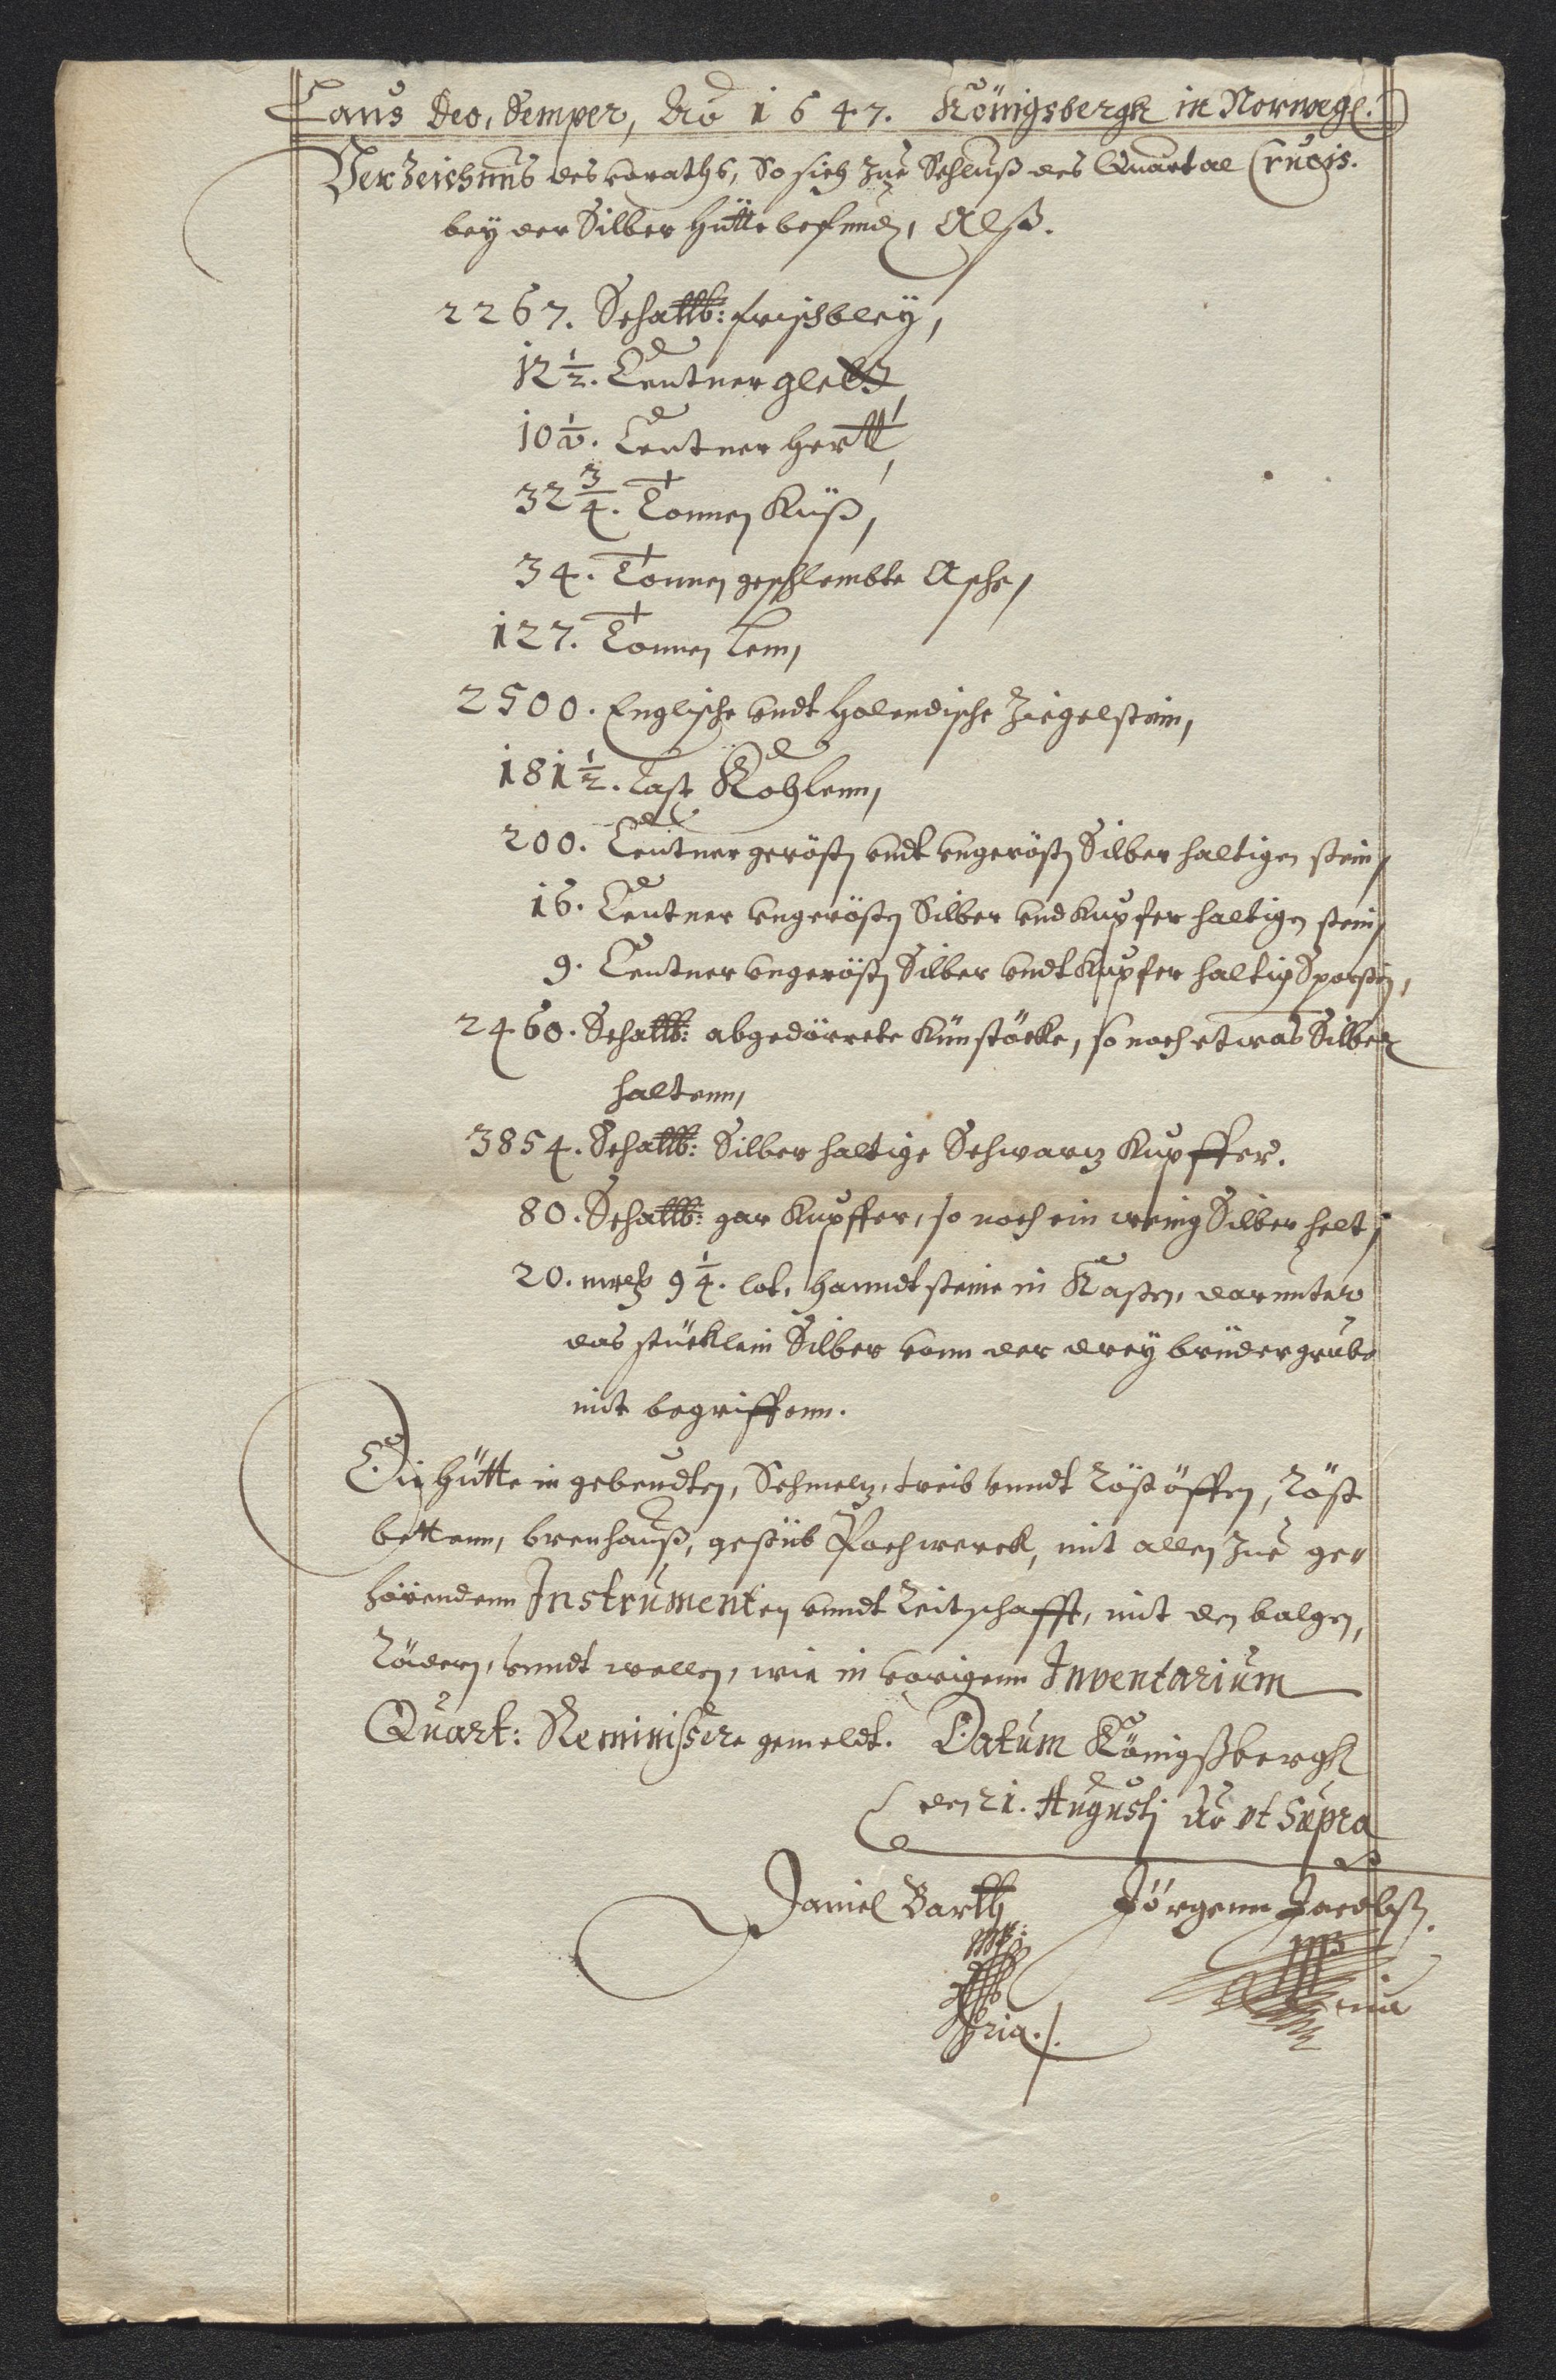 Laus Deo, Semper, Ao 1647. Königsbergk in Norwegl.
Verzeichnus des voraths, So sich zue Schluß des Quartal Crucis.
bey der Silber Hütte befindz, Alß.
2267. Schallb: frischbley,
12 1/2. Centner glett,
10 1/2. Centner hertt,
32 3/4. Tonnen Küß,
34. Tonnen geschlembte Asche,
127. Tonnen Lem,
2500. Englische vndt Holendische Ziegelstein,
181 1/2. Last Kohlenn,
200. Centner geröstn vndt vngeröstn Silber haltigen stein,
16. Centner vngeröstn Silber vnd Kupfer haltigen stein,
9. Centner vngeröstn Silber vndt Kupfer haltig
2460. Schallb: abgedörrete Künstöcke, so noch etwas Silber
haltenn,
3854. Schallb: Silber haltige Schwarz Kupffer.
80. Schallb: gar Kupffer, so noch ein wenig Silber helt,
20. mrck 9 1/4. lot, Hanndtsteine in Kasten, darunter
das stücklein Silber vonn der drey brüder grube
mit begriffenn.
Die Hütte in gebeudten, Schmelz, treib vnndt Röstöffen, Röst
bettenn, brenhauß, gestüb Pochwerck, mit allen zue ge„
hörendenn Instrumenten vnndt Zeitschafft, mit den balgen,
Rädern, vnndt wellen, wie in vorigenn Inventarium
Quart: Reminiscere gemeldt. Datum Königßbergk
den 21. Augusti Ao vt Supra
Daniel Barth Jörgenn Jacobß.
mp:
pria.